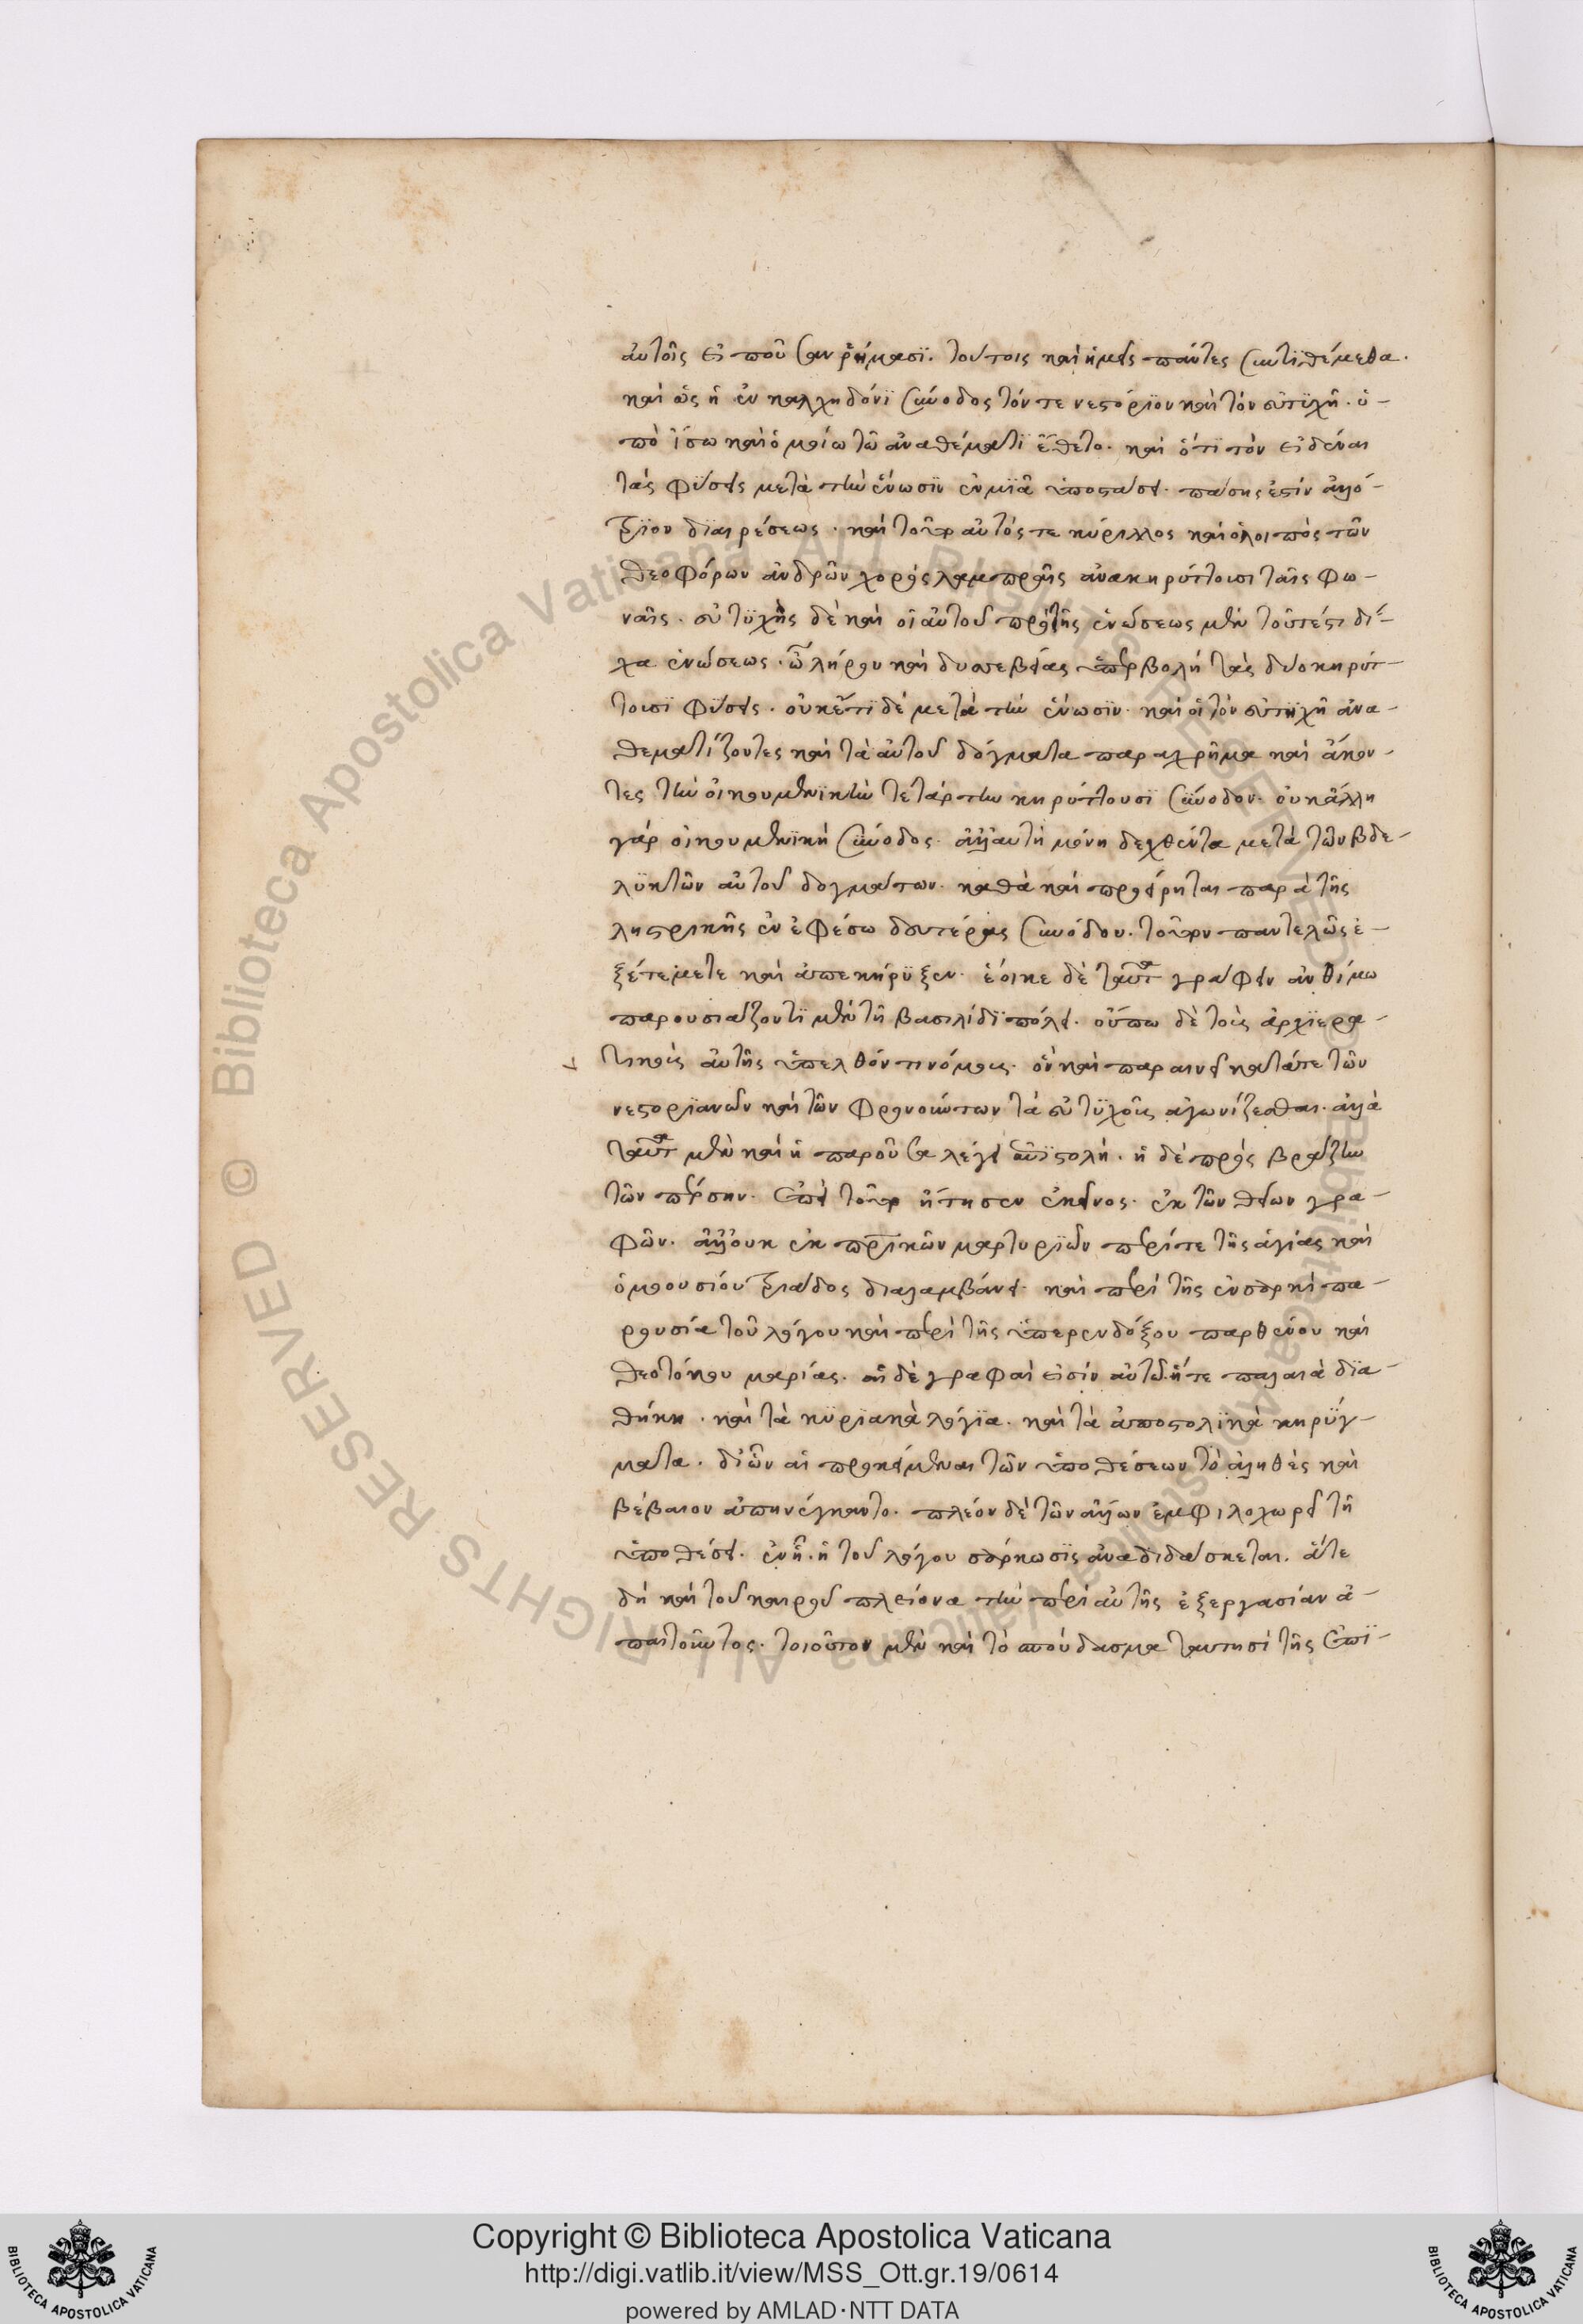 αὐτοῖς εἰποῦσαν ῥήμασϊ. τούτοις καὶ ἡμεῖς πάντες συντϊθέμεθα.
καὶ ὡς ἡ ἐν καλχηδόνϊ σύνοδος τόν τε νεστόρϊον καὶ τὸν εὐτϋχῆ. ὑ-
πὸ ἴσω καὶ ὁμοίω τῶ ἀναθέματϊ ἔθετο. καὶ ὅτϊ τὸν εἰδέναι
τὰς φύσεις μετὰ τὴν ἕνωσϊν ἐν μϊᾶ ὑποστάσει. πάσης ἐστὶν ἀλλό-
τρϊον δϊαιρέσεως. καὶ τοῦτο αὐτός τε κύριλλος καὶ ὁ λοιπὸς τῶν
θεοφόρων ἀνδρῶν χορὸς λαμπραῖς ἀνακηρύττουσι ταῖς φω-
ναῖς. εὐτϋχὴς δὲ καὶ οἱ αὐτοῦ πρὸ τῆς ἑνώσεως μὲν τοῦτέστι δί-
χα ἑνώσεως. ὢ λήρου καὶ δυσσεβείας ὑπερβολή τὰς δύο κηρύτ-
τουσϊ φύσεις. οὐκέτϊ δὲ μετὰ τὴν ἕνωσϊν. καὶ οἱ τὸν εὐτυχῆ ἀνα-
θεματίζοντες καὶ τὰ αὐτοῦ δόγματα παραχρῆμα καὶ ἄκον-
τες τὴν οἰκουμενϊκὴν τετάρτην κηρύττουσϊ σύνοδον. οὐκ ἄλλη
γὰρ οἰκουμενϊκὴ σύνοδος. ἀλλ' αὐτὴ μόνη δεχθέντα μετὰ τῶν βδε-
λϋκτῶν αὐτοῦ δογμάτων. καθὰ καὶ προείρηται παρὰ τῆς
ληστρικῆς ἐν ἐφέσω δευτέρας συνόδου. τοῦτον παντελῶς ἐ-
ξέτεμέτε καὶ ἀπεκήρϋξεν. ἔοικε δὲ ταῦτα γράφειν ἀνθίμω
παρουσιάζοντϊ μὲν τῆ βασιλίδϊ πόλει. οὔπω δὲ τοὺς ἀρχϊερα-
τικοὺς αὐτῆς ὑπελθόντι νόμους. ὃν καὶ παραινεῖ κατά τε τῶν
νεστορϊανῶν καὶ τῶν φρονούντων τὰ εὐτϋχοῦς ἀγωνίζεσθαι. ἀλλὰ
ταῦτα μὲν καὶ ἡ παροῦσα λέγει ἐπϊστολή. ἡ δὲ πρὸς βράζην
τὸν πέρσην. ἐπεὶ τοῦτο ἤτησεν ἐκεῖνος. ἐκ τῶν θείων γρα-
φῶν. ἀλλ' οὐκ ἐκ πατρικῶν μαρτυρϊῶν περί τε τῆς ἁγίας καὶ
ὁμοουσίου τριάδος διαλαμβάνει. καὶ περὶ τῆς ἐνσάρκου πα-
ρουσίας τοῦ λόγου καὶ περὶ τῆς ὑπερενδόξου παρθένου καὶ
θεοτόκου μαρίας. αἱ δὲ γραφαί εἰσὶν αὐτῶ. ἥ τε παλαιὰ δϊα-
θήκη. καὶ τὰ κϋρϊακὰ λόγϊα. καὶ τὰ ἀποστολϊκὰ κηρΰγ-
ματα. δι' ὧν αἱ προκείμεναι τῶν ὑποθέσεων τὸ ἀληθὲς καὶ
βέβαιον ἀπηνέγκαντο. πλέον δὲ τῶν ἄλλων ἐμφιλοχωρεῖ τῆ
ὑποθέσει. ἐν ἧ. ἡ τοῦ λόγου σάρκωσϊς ἀναδιδάσκεται. ἅτε
δὴ καὶ τοῦ καιροῦ πλείονα τὴν περὶ αὐτῆς ἐξεργασίαν ἀ-
παιτοῦντος. τοιοῦτον μὲν καὶ τὸ σπούδασμα ταυτησὶ τῆς ἐπϊ-
Copyright © Biblioteca Apostolica Vaticana
http://digi.vatlib.it/view/MSS_Ott.gr.19/0614
powered by AMLAD·NTT DATA